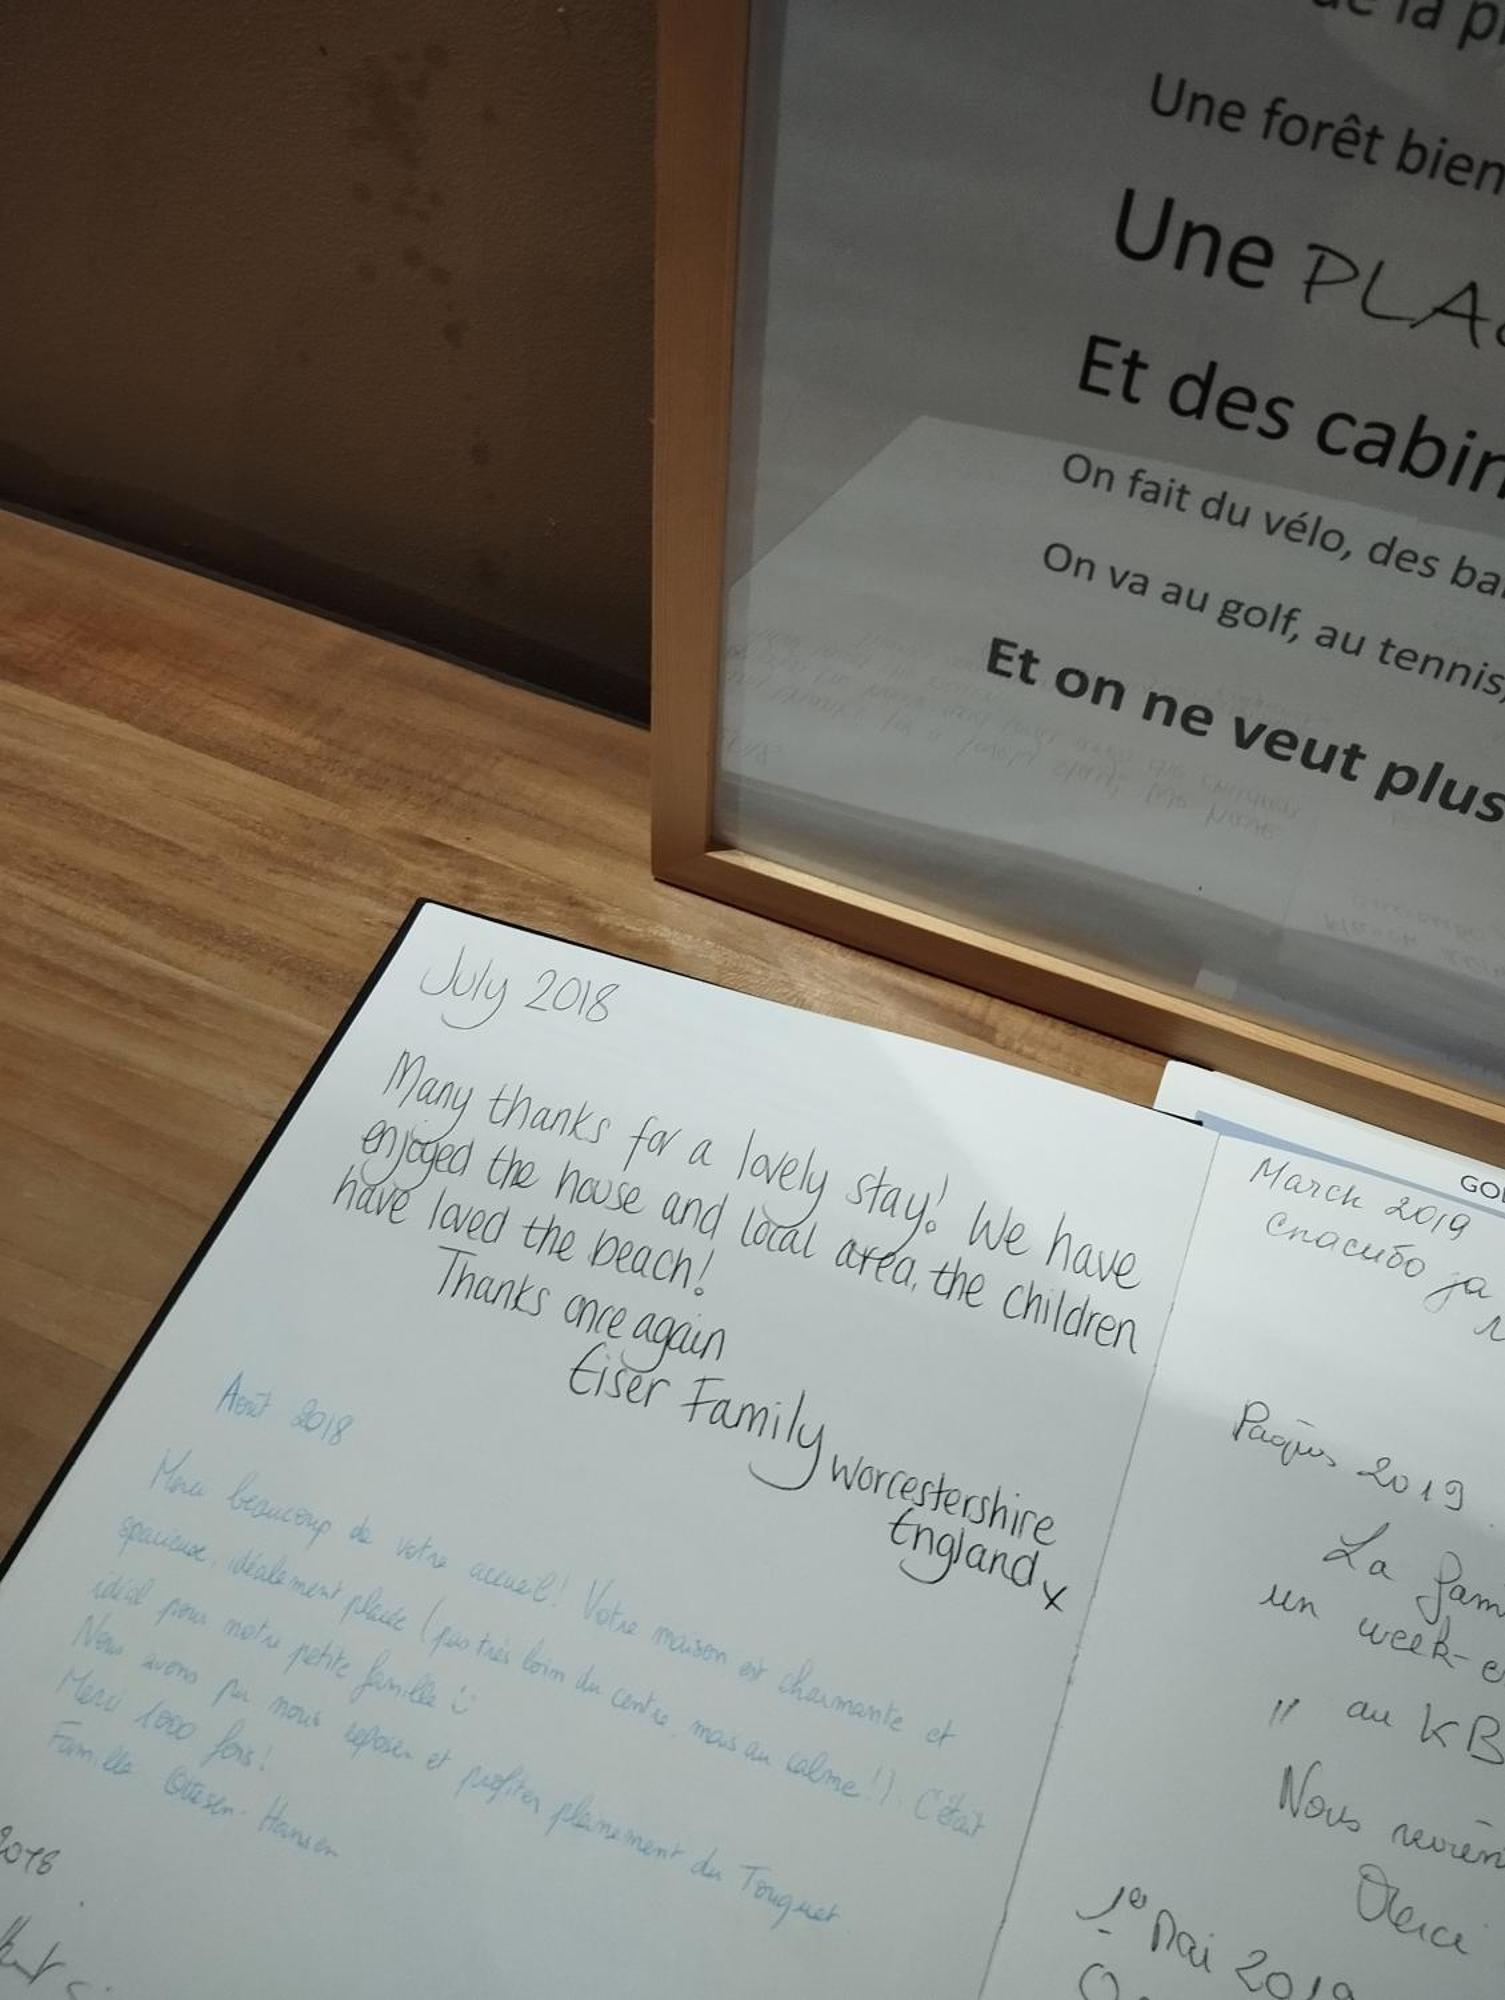 de la
Une forêt bien
Une PLA
Et des cabin
On fait du vélo, des
On va au golf, au tennis,
Et on ne veut plus
July 2018
Many thanks for a lovely stay! We have
enjoyed the house and local area, the children
have loved the beach!
Thanks once again
Eiser Family
Worcestershire
England x
Août 2018
Merci beaucoup de votre accueil! Votre maison est charmante et
spacieuse, idéalement placée (pas très loin du centre, mais au calme!). C'était
idéal pour notre petite famille :)
Nous avons pu nous reposer et profiter pleinement du Touquet
Merci 1000 fois!
Famille Hansen
2018
March 2019
Спасибо за
Pâques 2019
La fam
un week-e
" au KB
Nous
Merci
1er Mai 2019